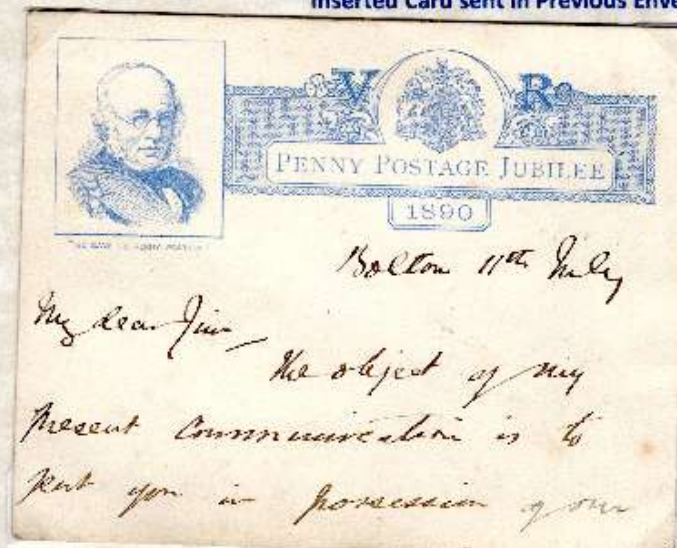 Inserted Card sent in Previous Enve
V R
PENNY POSTAGE JUBILEE
1890
Bolton 11th July
My dear Jim
The object of my
present communication is to
put you in possession of our